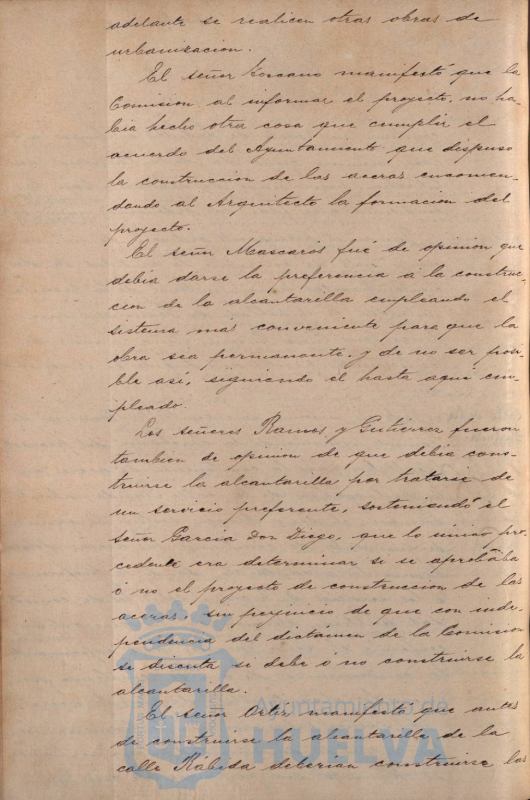 adelante se realicen otras obras de
urbanizacion.
El señor Toscano manifestó que la
Comision al informar el proyecto, no ha
bia hecho otra cosa que cumplir el
acuerdo del Ayuntamiento que dispuso
la construccion de las aceras encomen-
dando al Arquitecto la formacion del
proyecto.
El señor Mascarós fué de opinion que
debia darse la preferencia á la construc-
cion de la alcantarilla empleando el
sistema más conveniente para que la
obra sea permanente, y de no ser posi-
ble asi, siguiendo el hasta aqui em-
pleado.
Los señores Ramos y Gutierrez fueron
tambien de opinion de que debia cons-
truirse la alcantarilla por tratarse de
un servicio preferente, sosteniendo el
señor Garcia Don Diego, que lo único pro
cedente era determinar si se aprobaba
ó no el proyecto de construccion de las
aceras, sin perjuicio de que con inde-
pendencia del dictámen de la Comision
se discuta si debe ó no construirse la
alcantarilla.
El señor Ortiz manifestó que antes
de construirse la alcantarilla de la
calle Rábida deberian construirse las
Ayuntamiento de
HUELVA